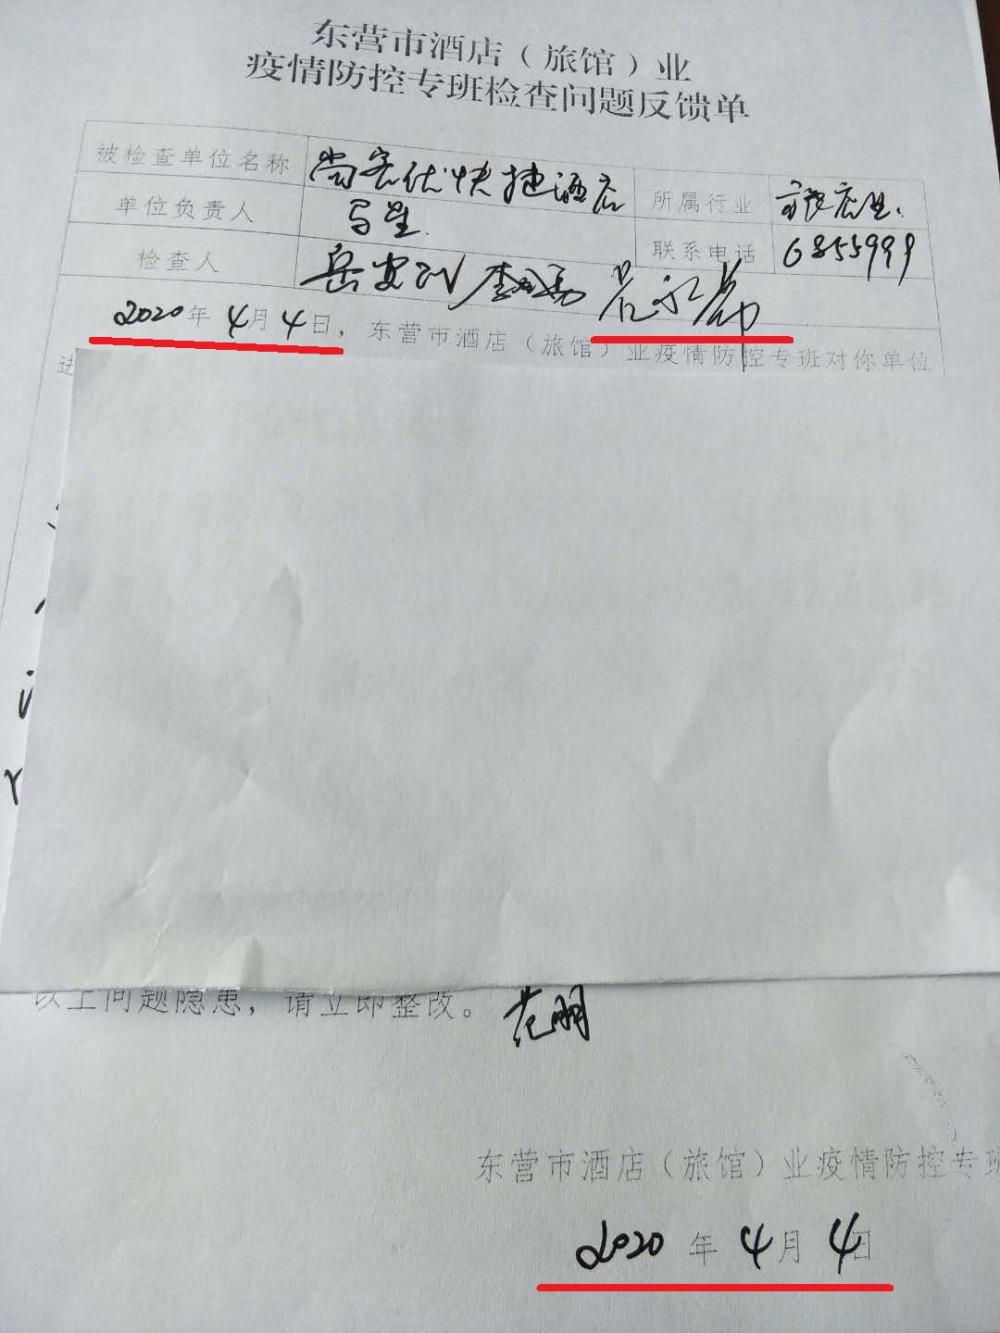 东营市酒店（旅馆）业
疫情防控专班检查问题反馈单
被检查单位名称 尚客优快捷酒店 所属行业 旅店业.
单位负责人 马星. 联系电话 6855999
检查人 岳 李 苑永
2020年4月4日，东营市酒店（旅馆）业疫情防控专班对你单位
进
以上问题隐患，请立即整改。 苑明
东营市酒店（旅馆）业疫情防控专班
2020年4月4日